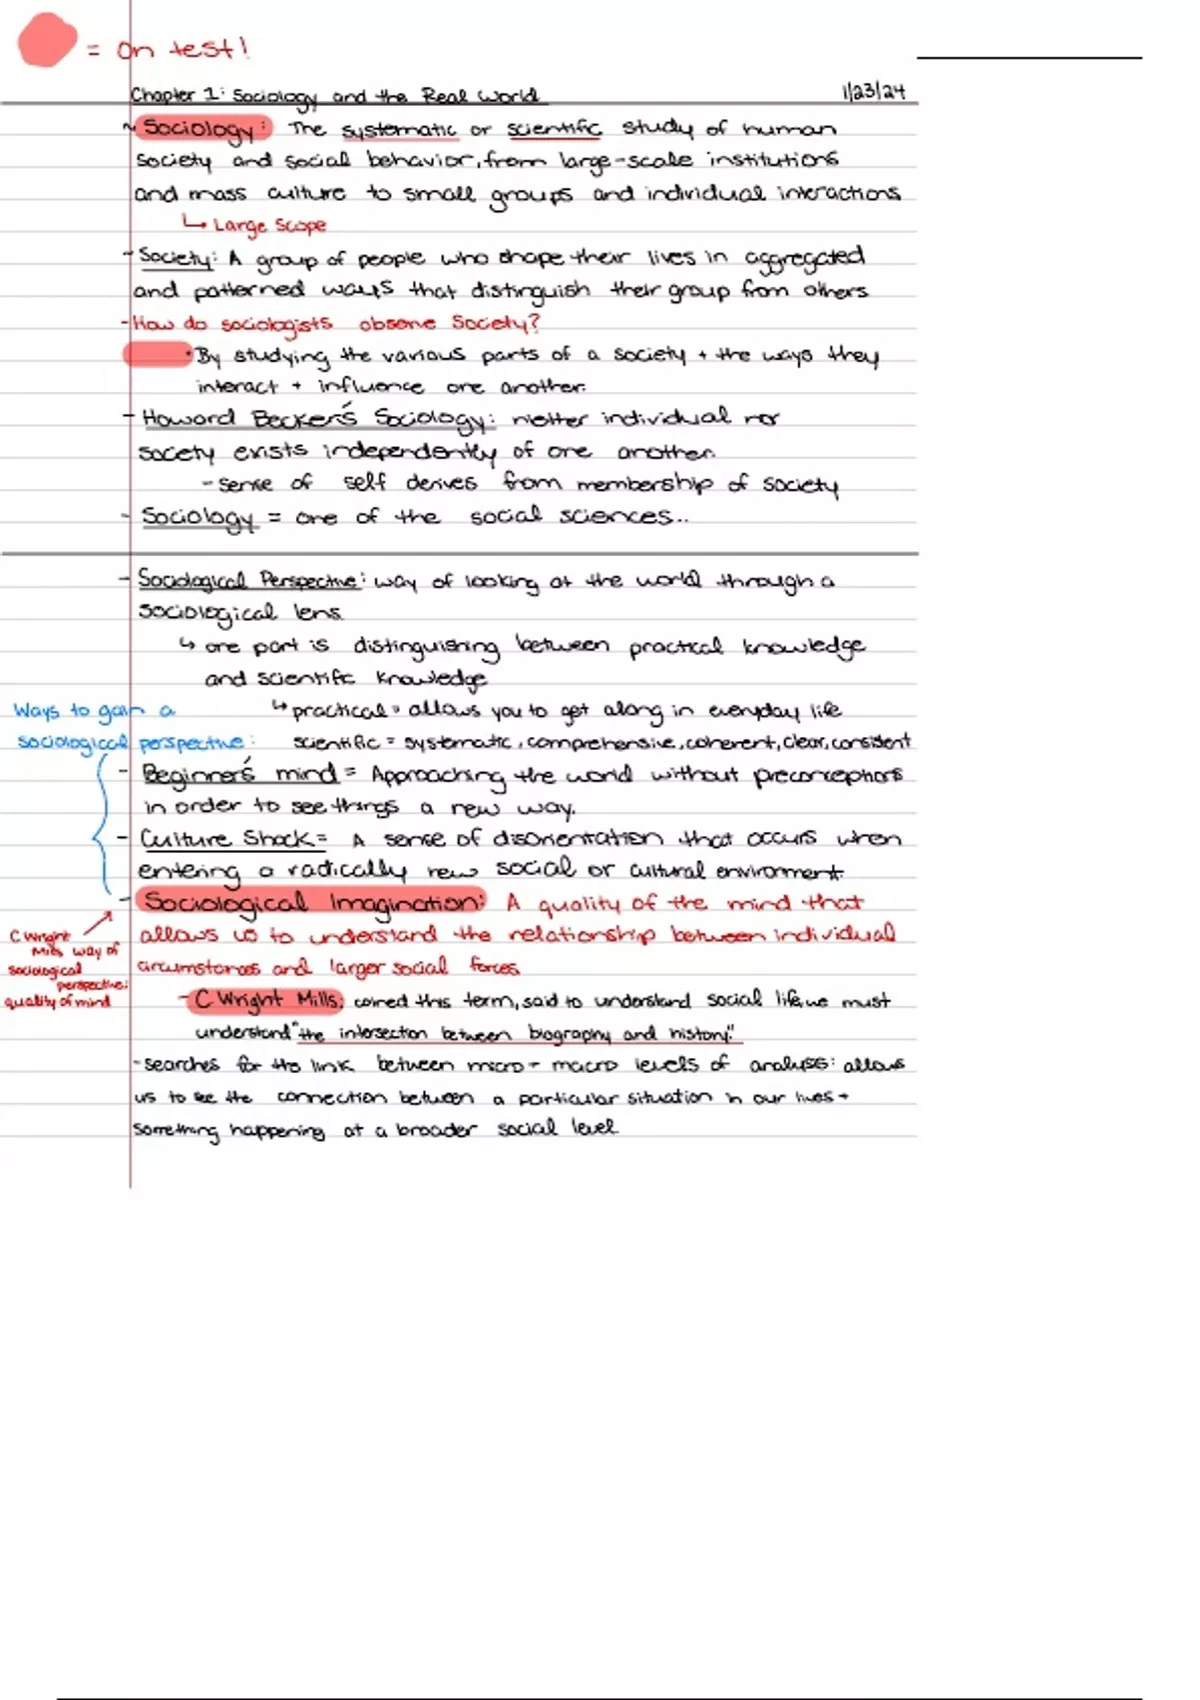 = on test!
Chapter 1: Sociology and the Real World 1/23/24
~ Sociology: The systematic or scientific study of human
society and social behavior, from large-scale institutions
and mass culture to small groups and individual interactions
↳ Large Scope
- Society: A group of people who shape their lives in aggregated
and patterned ways that distinguish their group from others
- How do sociologists observe Society?
• By studying the various parts of a society + the ways they
interact + influence one another.
- Howard Becker's Sociology: neither individual nor
society exists independently of one another.
- sense of self derives from membership of society
- Sociology = one of the social sciences..
- Sociological Perspective: way of looking at the world through a
sociological lens
↳ one part is distinguishing between practical knowledge
and scientific knowledge
Ways to gain a
↳ practical = allows you to get along in everyday life
sociological perspective:
scientific = systematic, comprehensive, coherent, clear, consistent
- Beginner's mind = Approaching the world without preconceptions
in order to see things a new way.
- Culture Shock = A sense of disorientation that occurs when
entering a radically new social or cultural environment
- Sociological Imagination: A quality of the mind that
allows us to understand the relationship between individual
circumstances and larger social forces
C Wright
Mills way of
sociological
perspective:
quality of mind
- C Wright Mills: coined this term, said to understand social life, we must
understand "the intersection between biography and history."
- searches for the link between micro + macro levels of analysis: allows
us to see the connection between a particular situation in our lives +
something happening at a broader social level